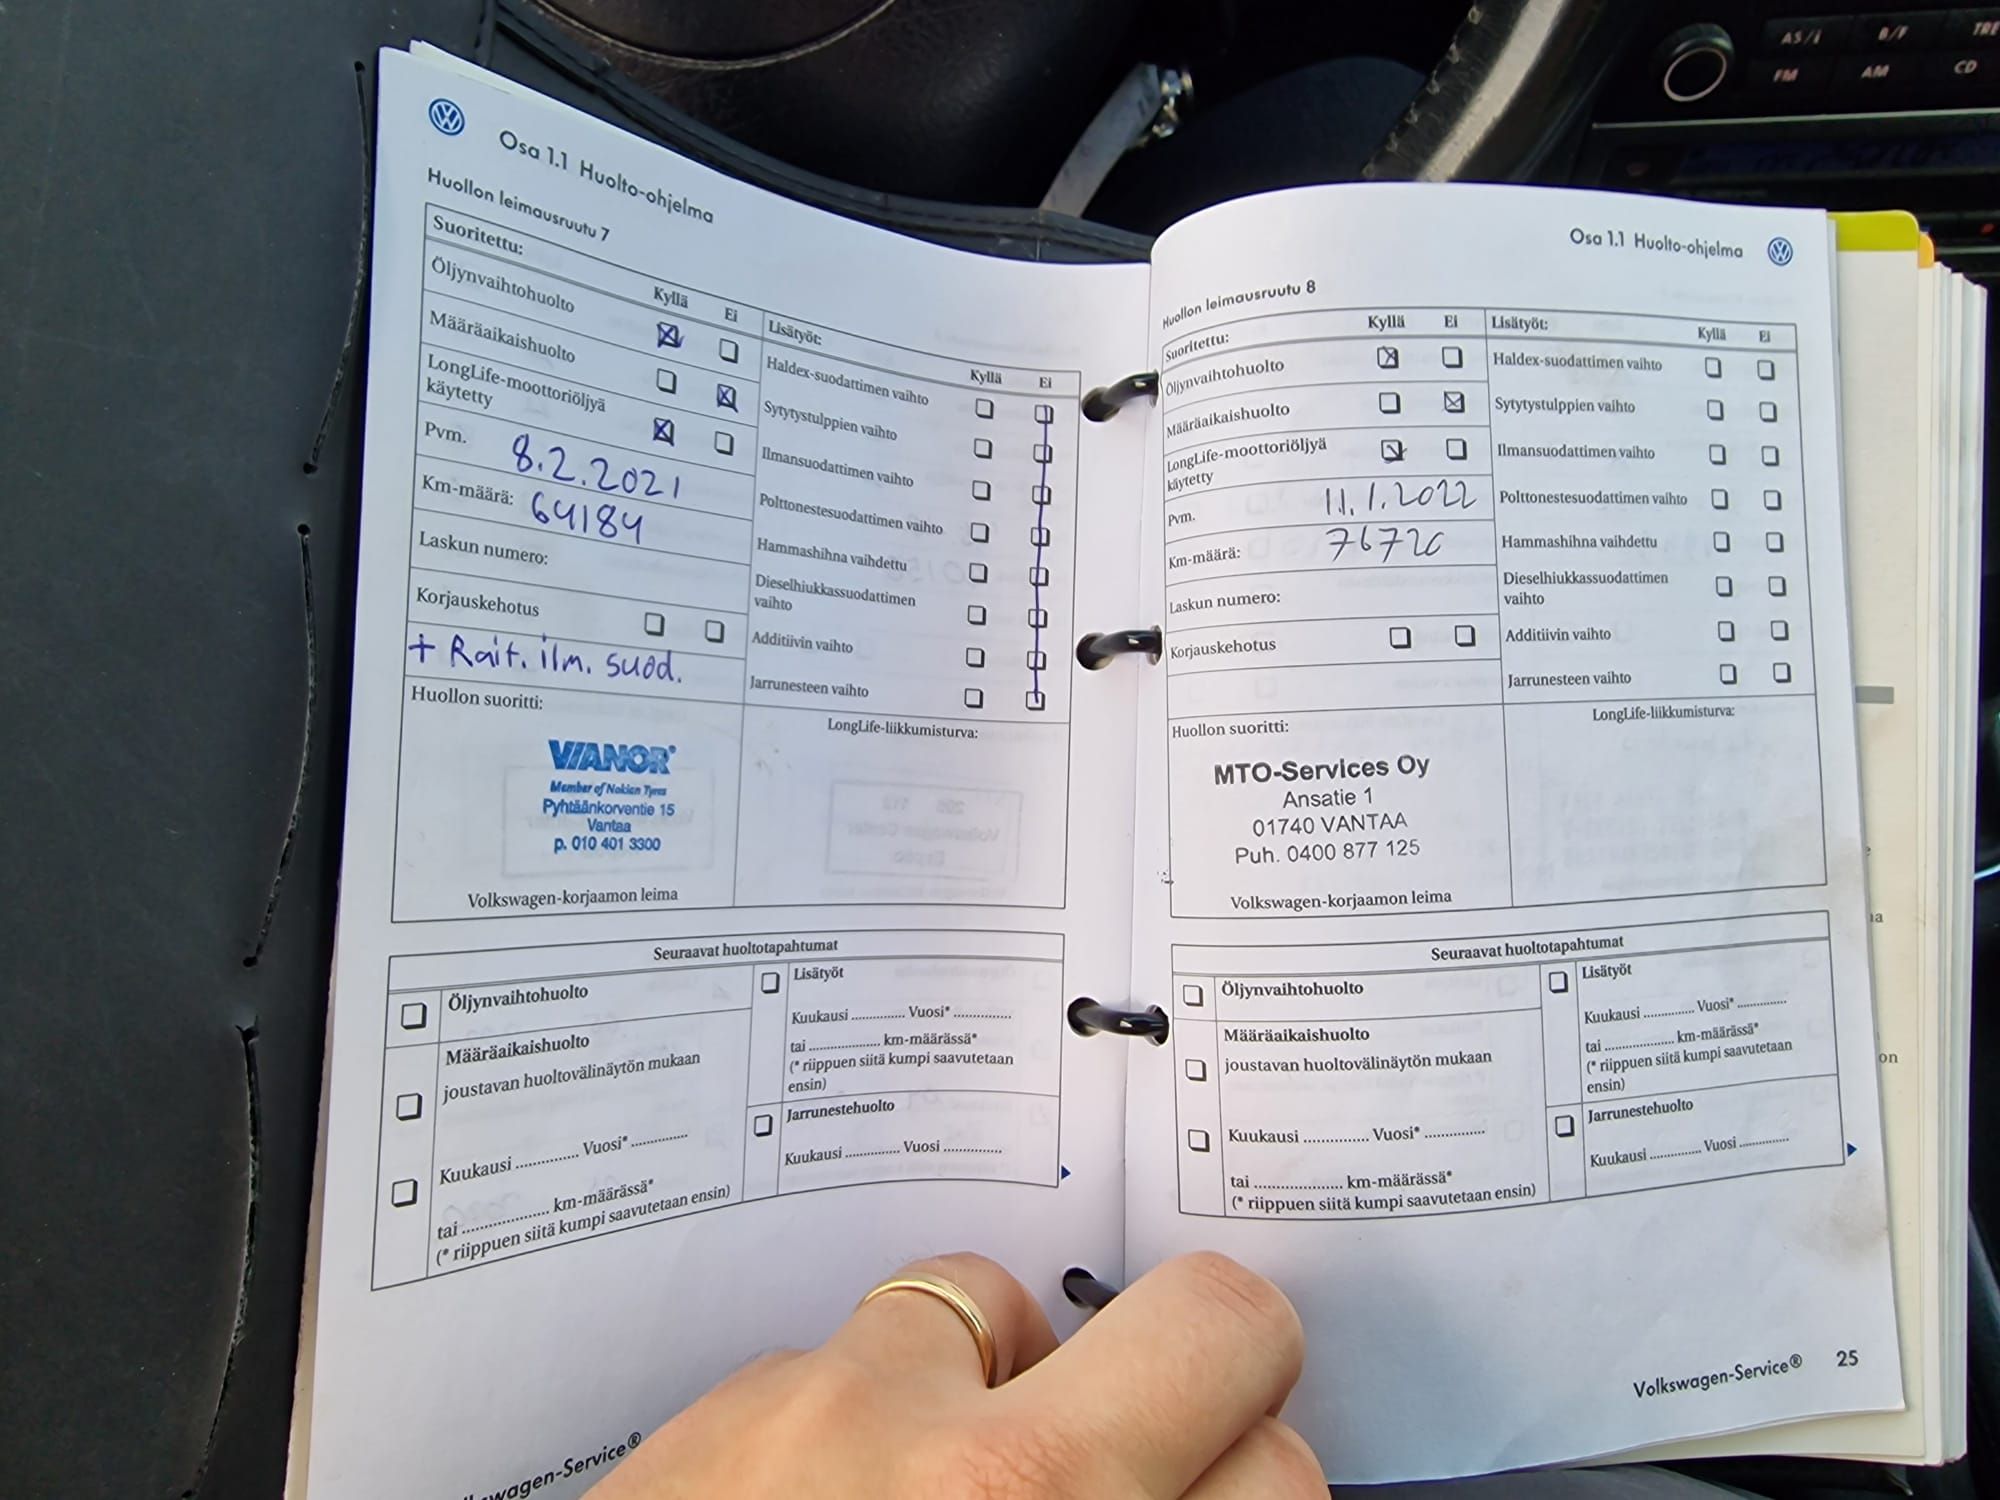 Osa 1.1 Huolto-ohjelma
Huollon leimausruutu 7
Suoritettu:
Kyllä Ei
Öljynvaihtohuolto
Määräaikaishuolto
LongLife-moottoriöljyä
käytetty
Pvm. 8.2.2021
Km-määrä: 64184
Laskun numero:
Korjauskehotus
+ Rait. ilm. suod.
Lisätyöt:
Kyllä Ei
Haldex-suodattimen vaihto
Sytytystulppien vaihto
Ilmansuodattimen vaihto
Polttonestesuodattimen vaihto
Hammashihna vaihdettu
Dieselhiukkassuodattimen
vaihto
Additiivin vaihto
Jarrunesteen vaihto
Huollon suoritti:
VIANOR®
Member of Nokian Tyres
Pyhtäänkorventie 15
Vantaa
p. 010 401 3300
Volkswagen-korjaamon leima
LongLife-liikkumisturva:
Seuraavat huoltotapahtumat
Öljynvaihtohuolto
Määräaikaishuolto
joustavan huoltovälinäytön mukaan
Kuukausi .............. Vuosi* ..............
tai ..................... km-määrässä*
(* riippuen siitä kumpi saavutetaan ensin)
Lisätyöt
Kuukausi .............. Vuosi* ...............
tai .................. km-määrässä*
(* riippuen siitä kumpi saavutetaan
ensin)
Jarrunestehuolto
Kuukausi .............. Vuosi ...............
wagen-Service®
Osa 1.1 Huolto-ohjelma
Huollon leimausruutu 8
Suoritettu:
Kyllä Ei
Öljynvaihtohuolto
Määräaikaishuolto
LongLife-moottoriöljyä
käytetty
Pvm. 11.1.2022
Km-määrä: 76720
Laskun numero:
Korjauskehotus
Lisätyöt:
Kyllä Ei
Haldex-suodattimen vaihto
Sytytystulppien vaihto
Ilmansuodattimen vaihto
Polttonestesuodattimen vaihto
Hammashihna vaihdettu
Dieselhiukkassuodattimen
vaihto
Additiivin vaihto
Jarrunesteen vaihto
Huollon suoritti:
MTO-Services Oy
Ansatie 1
01740 VANTAA
Puh. 0400 877 125
Volkswagen-korjaamon leima
LongLife-liikkumisturva:
Seuraavat huoltotapahtumat
Öljynvaihtohuolto
Määräaikaishuolto
joustavan huoltovälinäytön mukaan
Kuukausi ............... Vuosi* ..............
tai ..................... km-määrässä*
(* riippuen siitä kumpi saavutetaan ensin)
Lisätyöt
Kuukausi .............. Vuosi* .............
tai .................. km-määrässä*
(* riippuen siitä kumpi saavutetaan
ensin)
Jarrunestehuolto
Kuukausi .............. Vuosi .............
Volkswagen-Service® 25
AS/i B/F
FM AM CD